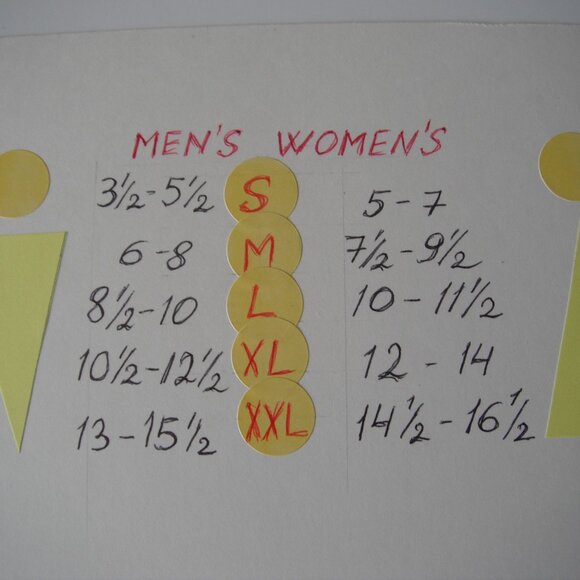 MEN'S WOMEN'S
3 1/2 - 5 1/2 S 5 - 7
6 - 8 M 7 1/2 - 9 1/2
8 1/2 - 10 L 10 - 11 1/2
10 1/2 - 12 1/2 XL 12 - 14
13 - 15 1/2 XXL 14 1/2 - 16 1/2